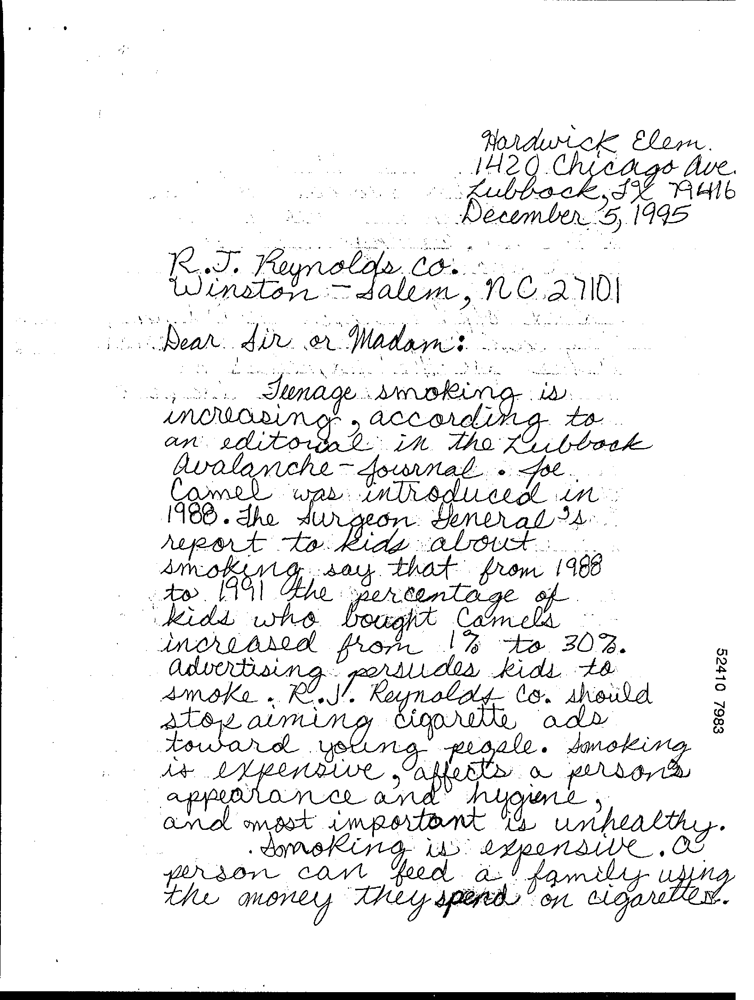 Hardwick Elem.
1420 Chicago Ave.
Lubbock, TX 79416
December 5, 1995
R.J. Reynolds Co.
Winston-Salem, NC 27101
Dear Sir or Madam:
Teenage smoking is
increasing, according to
an editorial in the Lubbock
Avalanche-Journal. Joe
Camel was introduced in
1988. The Surgeon General's
report to kids about
smoking say that from 1988
to 1991 the percentage of
kids who bought Camels
increased from 1% to 30%.
Advertising persudes kids to
smoke. R.J. Reynolds Co. should
stop aiming cigarette ads
toward young people. Smoking
is expensive, affects a person's
appearance and hygiene,
and most important is unhealthy.
Smoking is expensive. A
person can feed a family using
the money they spend on cigarettes.
52410 7983